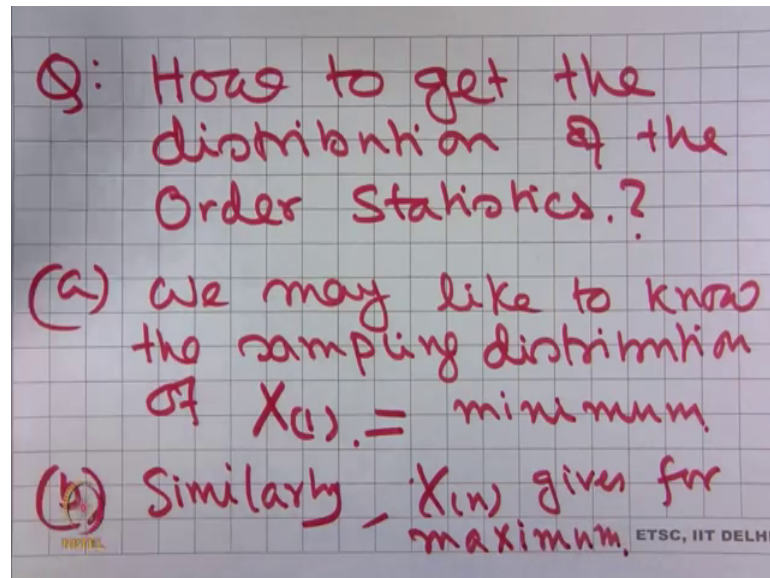 Q: How to get the
distribution of the
Order Statistics.?
(a) We may like to know
the sampling distribution
of X(1). = minimum.
(b) Similarly, X(n) gives for
maximum.
ETSC, IIT DELHI
NPTEL